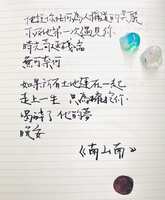 他說你任何為人稱道的美麗
不及他第一次遇見你
時光苟延殘喘
無可奈何
如果所有土地連在一起
走上一生 只為擁抱你
喝醉了他的夢
晚安
《南山南》